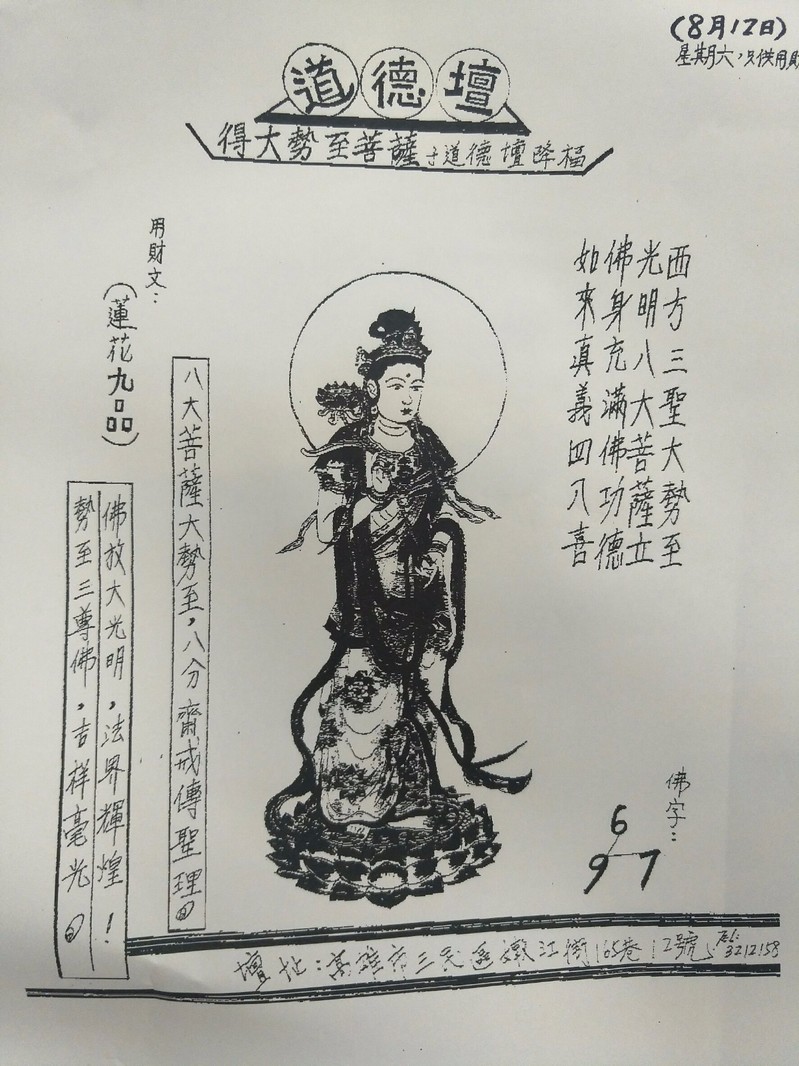 (8月12日)
星期六,只供用財
道德壇
得大勢至菩薩于道德壇降福
西方三聖大勢至
光明八大菩薩立
佛身充滿佛功德
如來真義四八喜
用財文:
(蓮花九品)
八大菩薩大勢至,八分齋戒傳聖理。
佛放大光明,法界輝煌!
勢至三尊佛,吉祥毫光。
佛字:
6
9 7
壇址:高雄市三民區嫩江街165巷12號
3212158